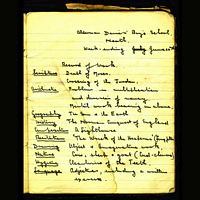 Boys' School,
Neath.
Week-ending
Record of Work
Scripture Death of Moses.
Crossing of the Jordan.
Arithmetic Problems in multiplication
and division of money
Mental work bearing on above.
Geography The Sun & the Earth
History The Norman Conquest of England
Composition A Lighthouse
Recitation The Wreck of the Hesperus
Drawing Object & Imaginative work.
Nature
Hygiene Usefulness of the Teeth
Language Adjectives, including a written
exercise.